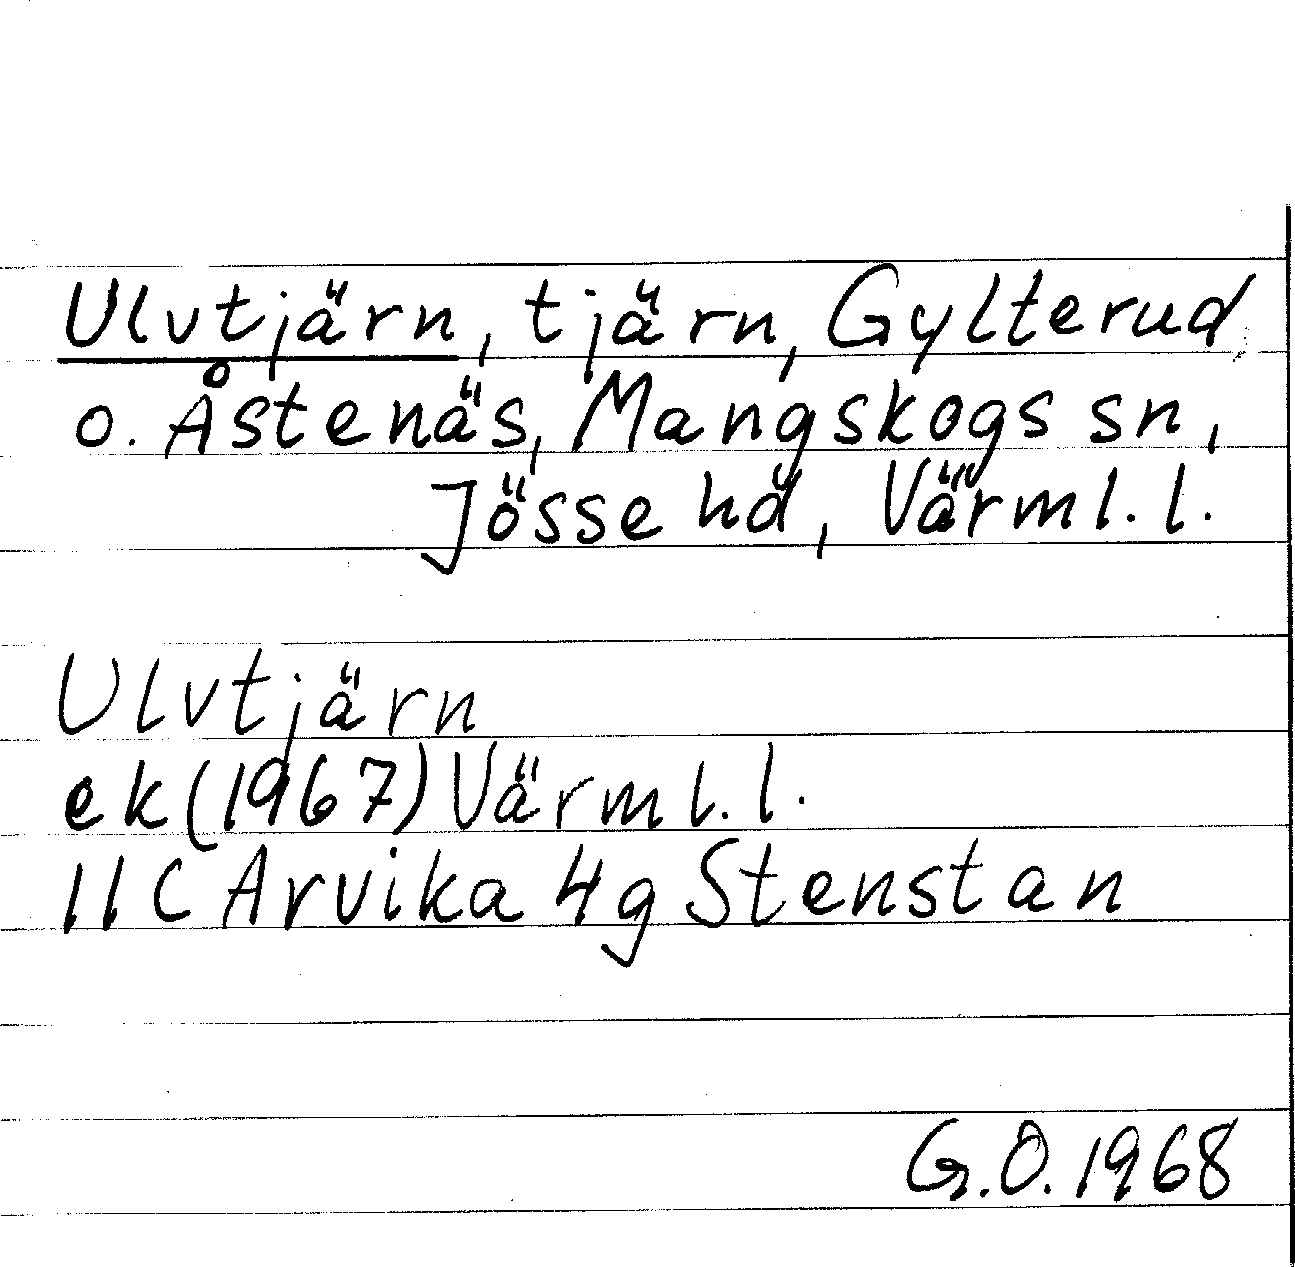 Ulvtjärn, tjärn, Gylterud
o. Åstenäs, Mangskogs sn,
Jösse hd, Värml. l.
Ulvtjärn
ek (1967) Värml. l.
11C Arvika 4g Stenstan
G.O. 1968